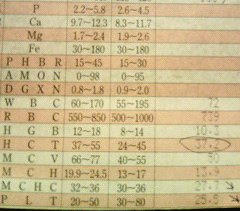 P 2.2~5.8 2.6~4.5
Ca 9.7~12.3 8.3~11.7
Mg 1.7~2.4 1.9~2.6
Fe 30~180 30~180
P H B R 15~45 15~30
A M O N 0~98 0~95
D G X N 0.8~1.8 0.9~2.0
W B C 60~170 55~195 72
R B C 550~850 500~1000 739
H G B 12~18 8~14 10.3
H C T 37~55 24~45 37.2
M C V 66~77 40~55 50
M C H 19.9~24.5 13~17 13.9
M C H C 32~36 30~36 27.7
P L T 20~50 30~80 25.8